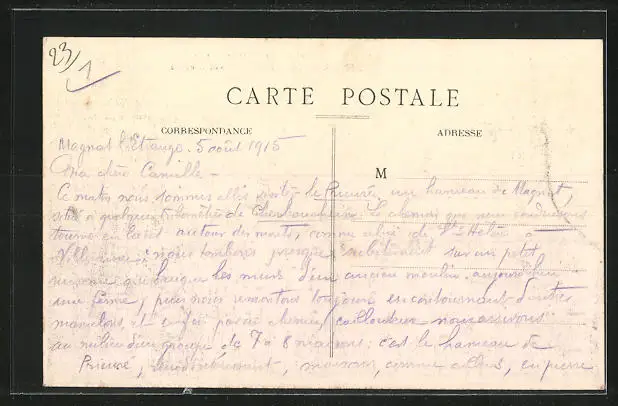 23/1
CARTE POSTALE
CORRESPONDANCE
ADRESSE
M
Magnat l'Etrange. 5 août 1915
Ma chère Camille –
Ce matin nous sommes allés visiter le Prieuré, un hameau de Magnat,
à quelques de le chemin que nous
tourne en autour des monts, comme celui de Ste Hélène à
nous tombons presque subitement sur un petit
les murs d'un ancien moulin, aujourd'hui
une ferme, puis nous remontons toujours en contournant d'autres
mamelons, et enfin par un chemin caillouteux nous arrivons
au milieu d'un groupe de 7 à 8 maisons : c'est le hameau de
Prieuré, maisons, comme ailleurs, en pierre